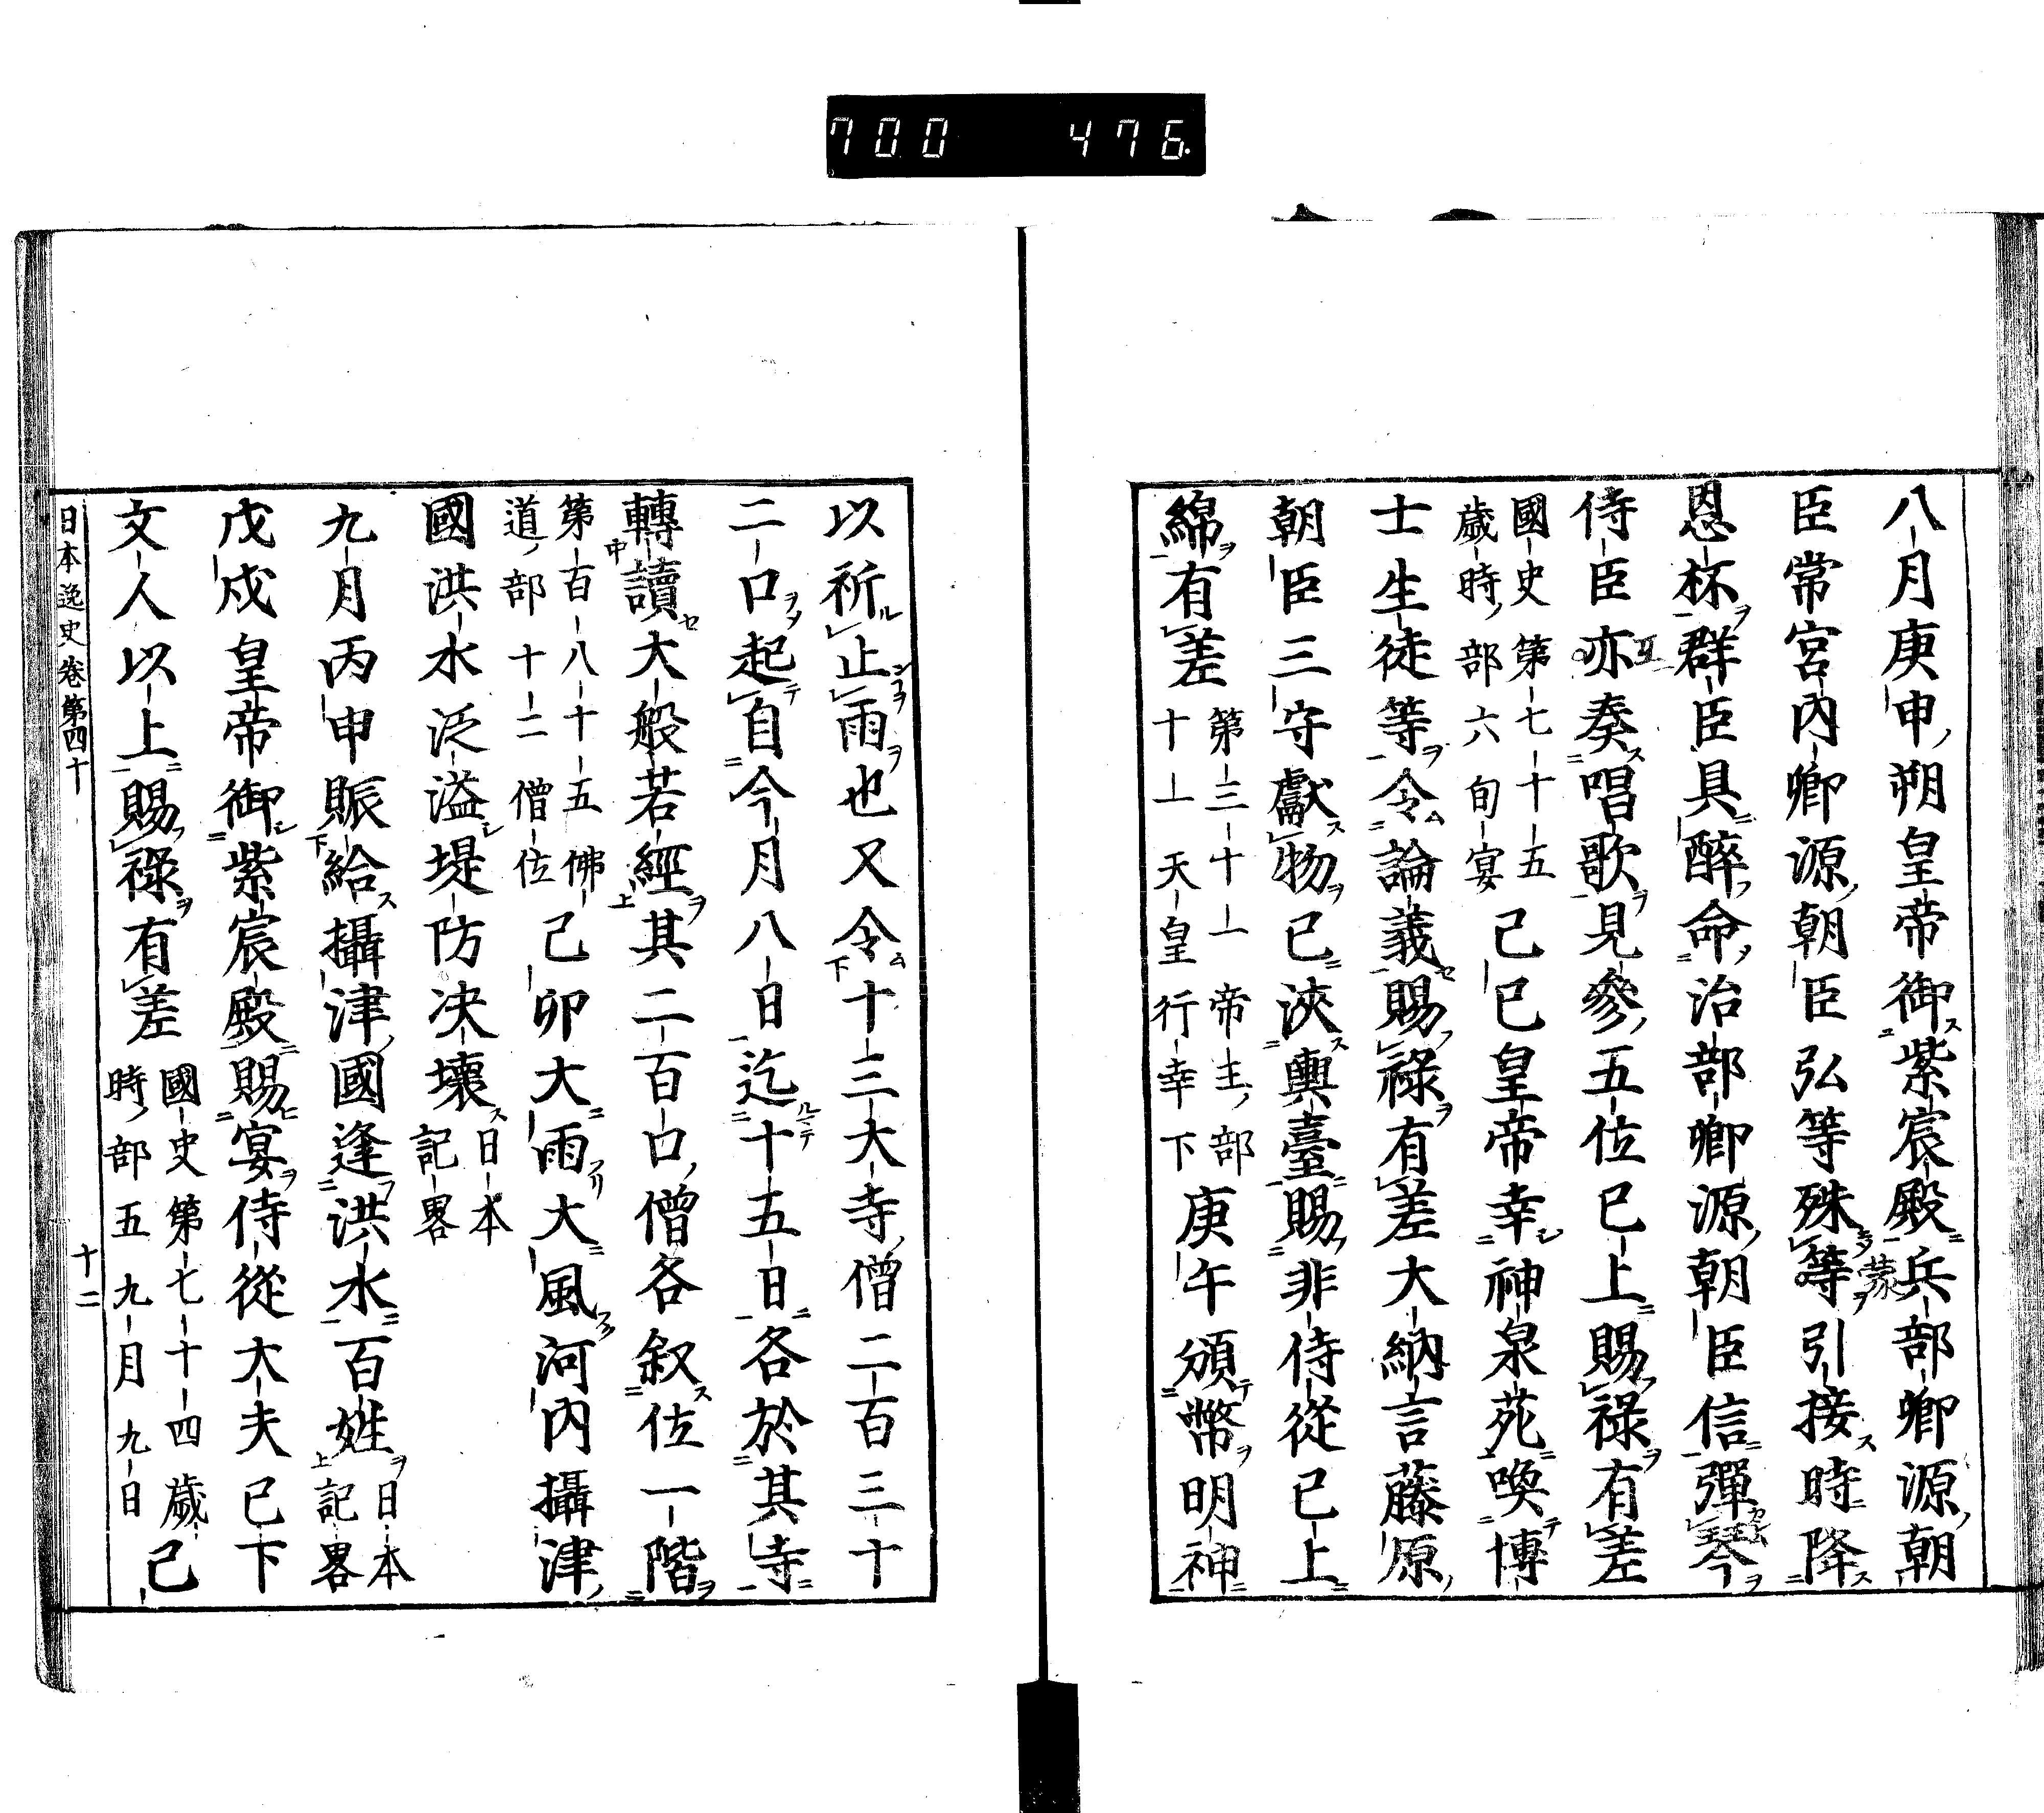 700 476
八月庚申朔皇帝御紫宸殿兵部卿源朝
臣常宮内卿源朝臣弘等殊等引接時降
恩杯群臣具醉命治部卿源朝臣信彈琴
侍臣亦奏唱歌見參五位已上賜祿有差
國史第七十五
歲時部六旬宴
己巳皇帝幸神泉苑喚博
士生徒等令論義賜祿有差大納言藤原
朝臣三守獻物已浹輿臺賜非侍從已上
綿有差
第三十一帝主部
十一天皇行幸下
庚午頒幣明神
以祈止雨也又令十三大寺僧二百三十
二口起自今月八日迄十五日各於其寺
轉讀大般若經其二百口僧各叙位一階
第百八十五佛
道部十二僧位
己卯大雨大風河内攝津
國洪水泛溢堤防决壞
日本
記畧
九月丙申賑給攝津國逢洪水百姓
日本
記畧
戊戍皇帝御紫宸殿賜宴侍從大夫已下
文人以上賜祿有差
國史第七十四歲
時部五九月九日
己
日本逸史卷第四十
十二